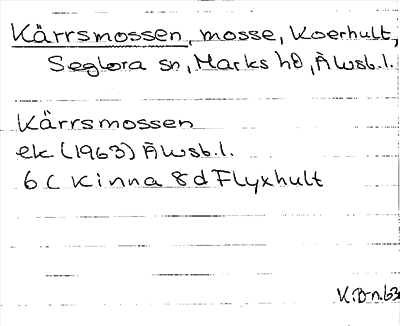 Kärrsmossen, mosse, Koerhult,
Seglora sn, Marks hd, Älvsb.l.
Kärrsmossen
ek (1963) Älvsb.l.
6 C Kinna 8 d Flyxhult
K.D-n.63